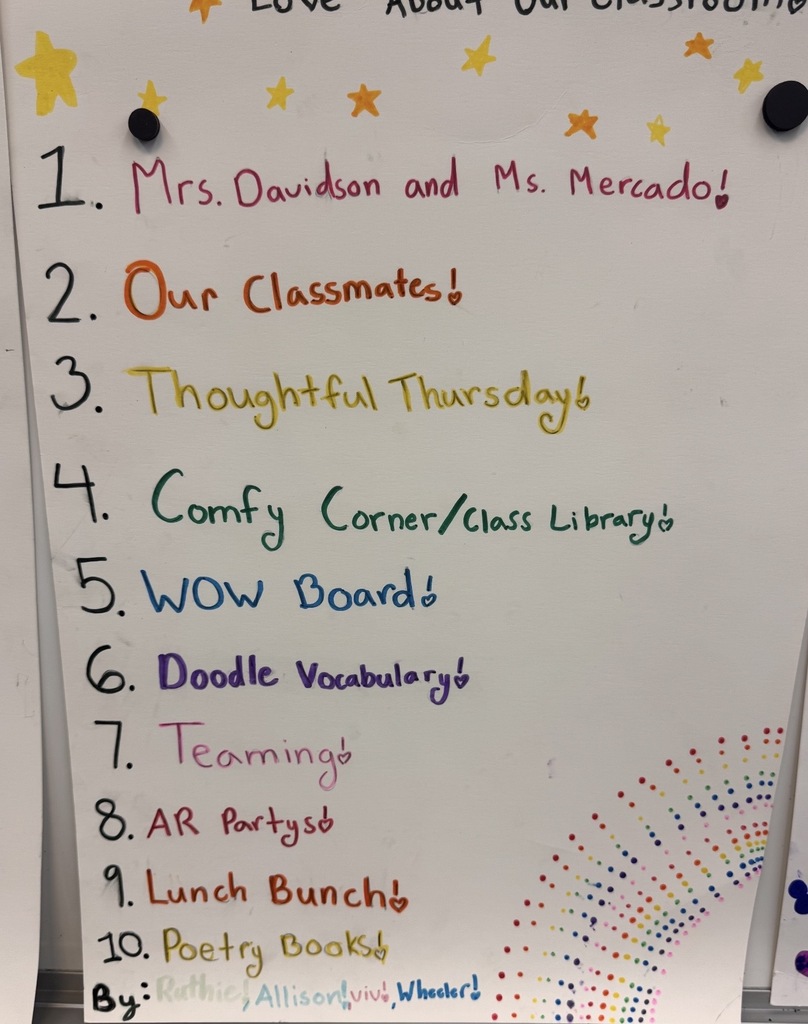 Love About Our Classroom
1. Mrs. Davidson and Ms. Mercado!
2. Our Classmates!
3. Thoughtful Thursday!
4. Comfy Corner/Class Library!
5. WOW Board!
6. Doodle Vocabulary!
7. Teaming!
8. AR Partys!
9. Lunch Bunch!
10. Poetry Books!
By: Ruthie!, Allison!, viv!, Wheeler!